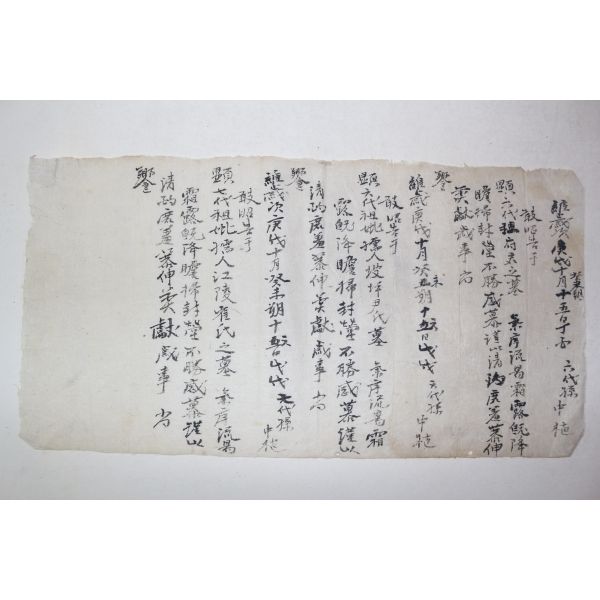 維歲庚戌十月十五日丁酉 六代孫 中植
癸朔
敢昭告于
顯六代祖府君之墓 氣序流易霜露旣降
瞻掃封塋不勝感慕謹以淸酌庶羞恭伸
奠獻歲事 尙
饗
維歲庚戌十月癸未朔十六日戊戌 六代孫 中植
敢昭告于
顯六代祖妣孺人坡坪尹氏之墓 氣序流易霜
露旣降瞻掃封塋不勝感慕謹以
淸酌庶羞恭伸奠獻歲事 尙
饗
維歲次庚戌十月癸未朔十六日戊戌 七代孫 中植
敢昭告于
顯七代祖妣孺人江陵崔氏之墓 氣序流易
霜露旣降瞻掃封塋不勝感慕謹以
淸酌庶羞恭伸奠獻歲事 尙
饗